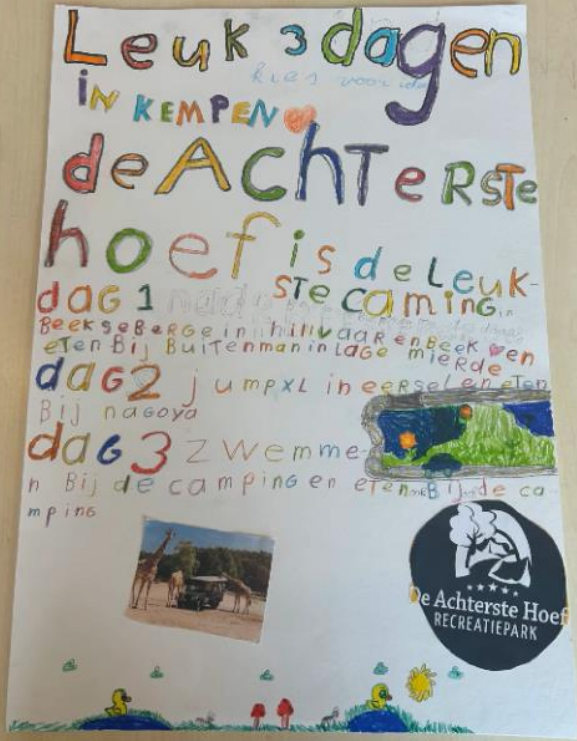 Leuk 3 dagen
kies voor
in KEMPEN
de AChTeRSTe
hoef is de Leuk-
dag 1 STe CamING
BeekseBeRGe in hillvaaRenBeek en
eTen Bij Buitenman in LaGe mieRde
dag 2 jumpXL in eerseL en eTen
Bij naGoya
dag 3 zwemme-
n Bij de camping en eTen Bij de ca-
mping
De Achterste Hoef
RECREATIEPARK